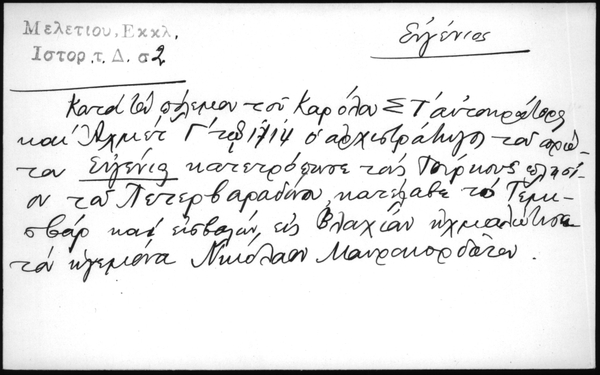 Μελετίου, Εκκλ.
Ιστορ. τ. Δ. σ 2
Εὐγένιος
Κατὰ τὸν πόλεμον τοῦ Καρόλου ΣΤ αὐτοκράτορος
καὶ Ἀχμὲτ Γ΄ τῷ 1714 ὁ ἀρχιστράτηγος τοῦ πρώ-
του Εὐγένιος κατετρόπωσε τοὺς Τούρκους πλησί-
ον τοῦ Πετερβαραδίνου, κατέλαβε τὸ Τεμε-
σβὰρ καὶ εἰσβαλὼν εἰς Βλαχίαν ᾐχμαλώτισε
τὸν ἡγεμόνα Νικόλαον Μαυροκορδᾶτον.